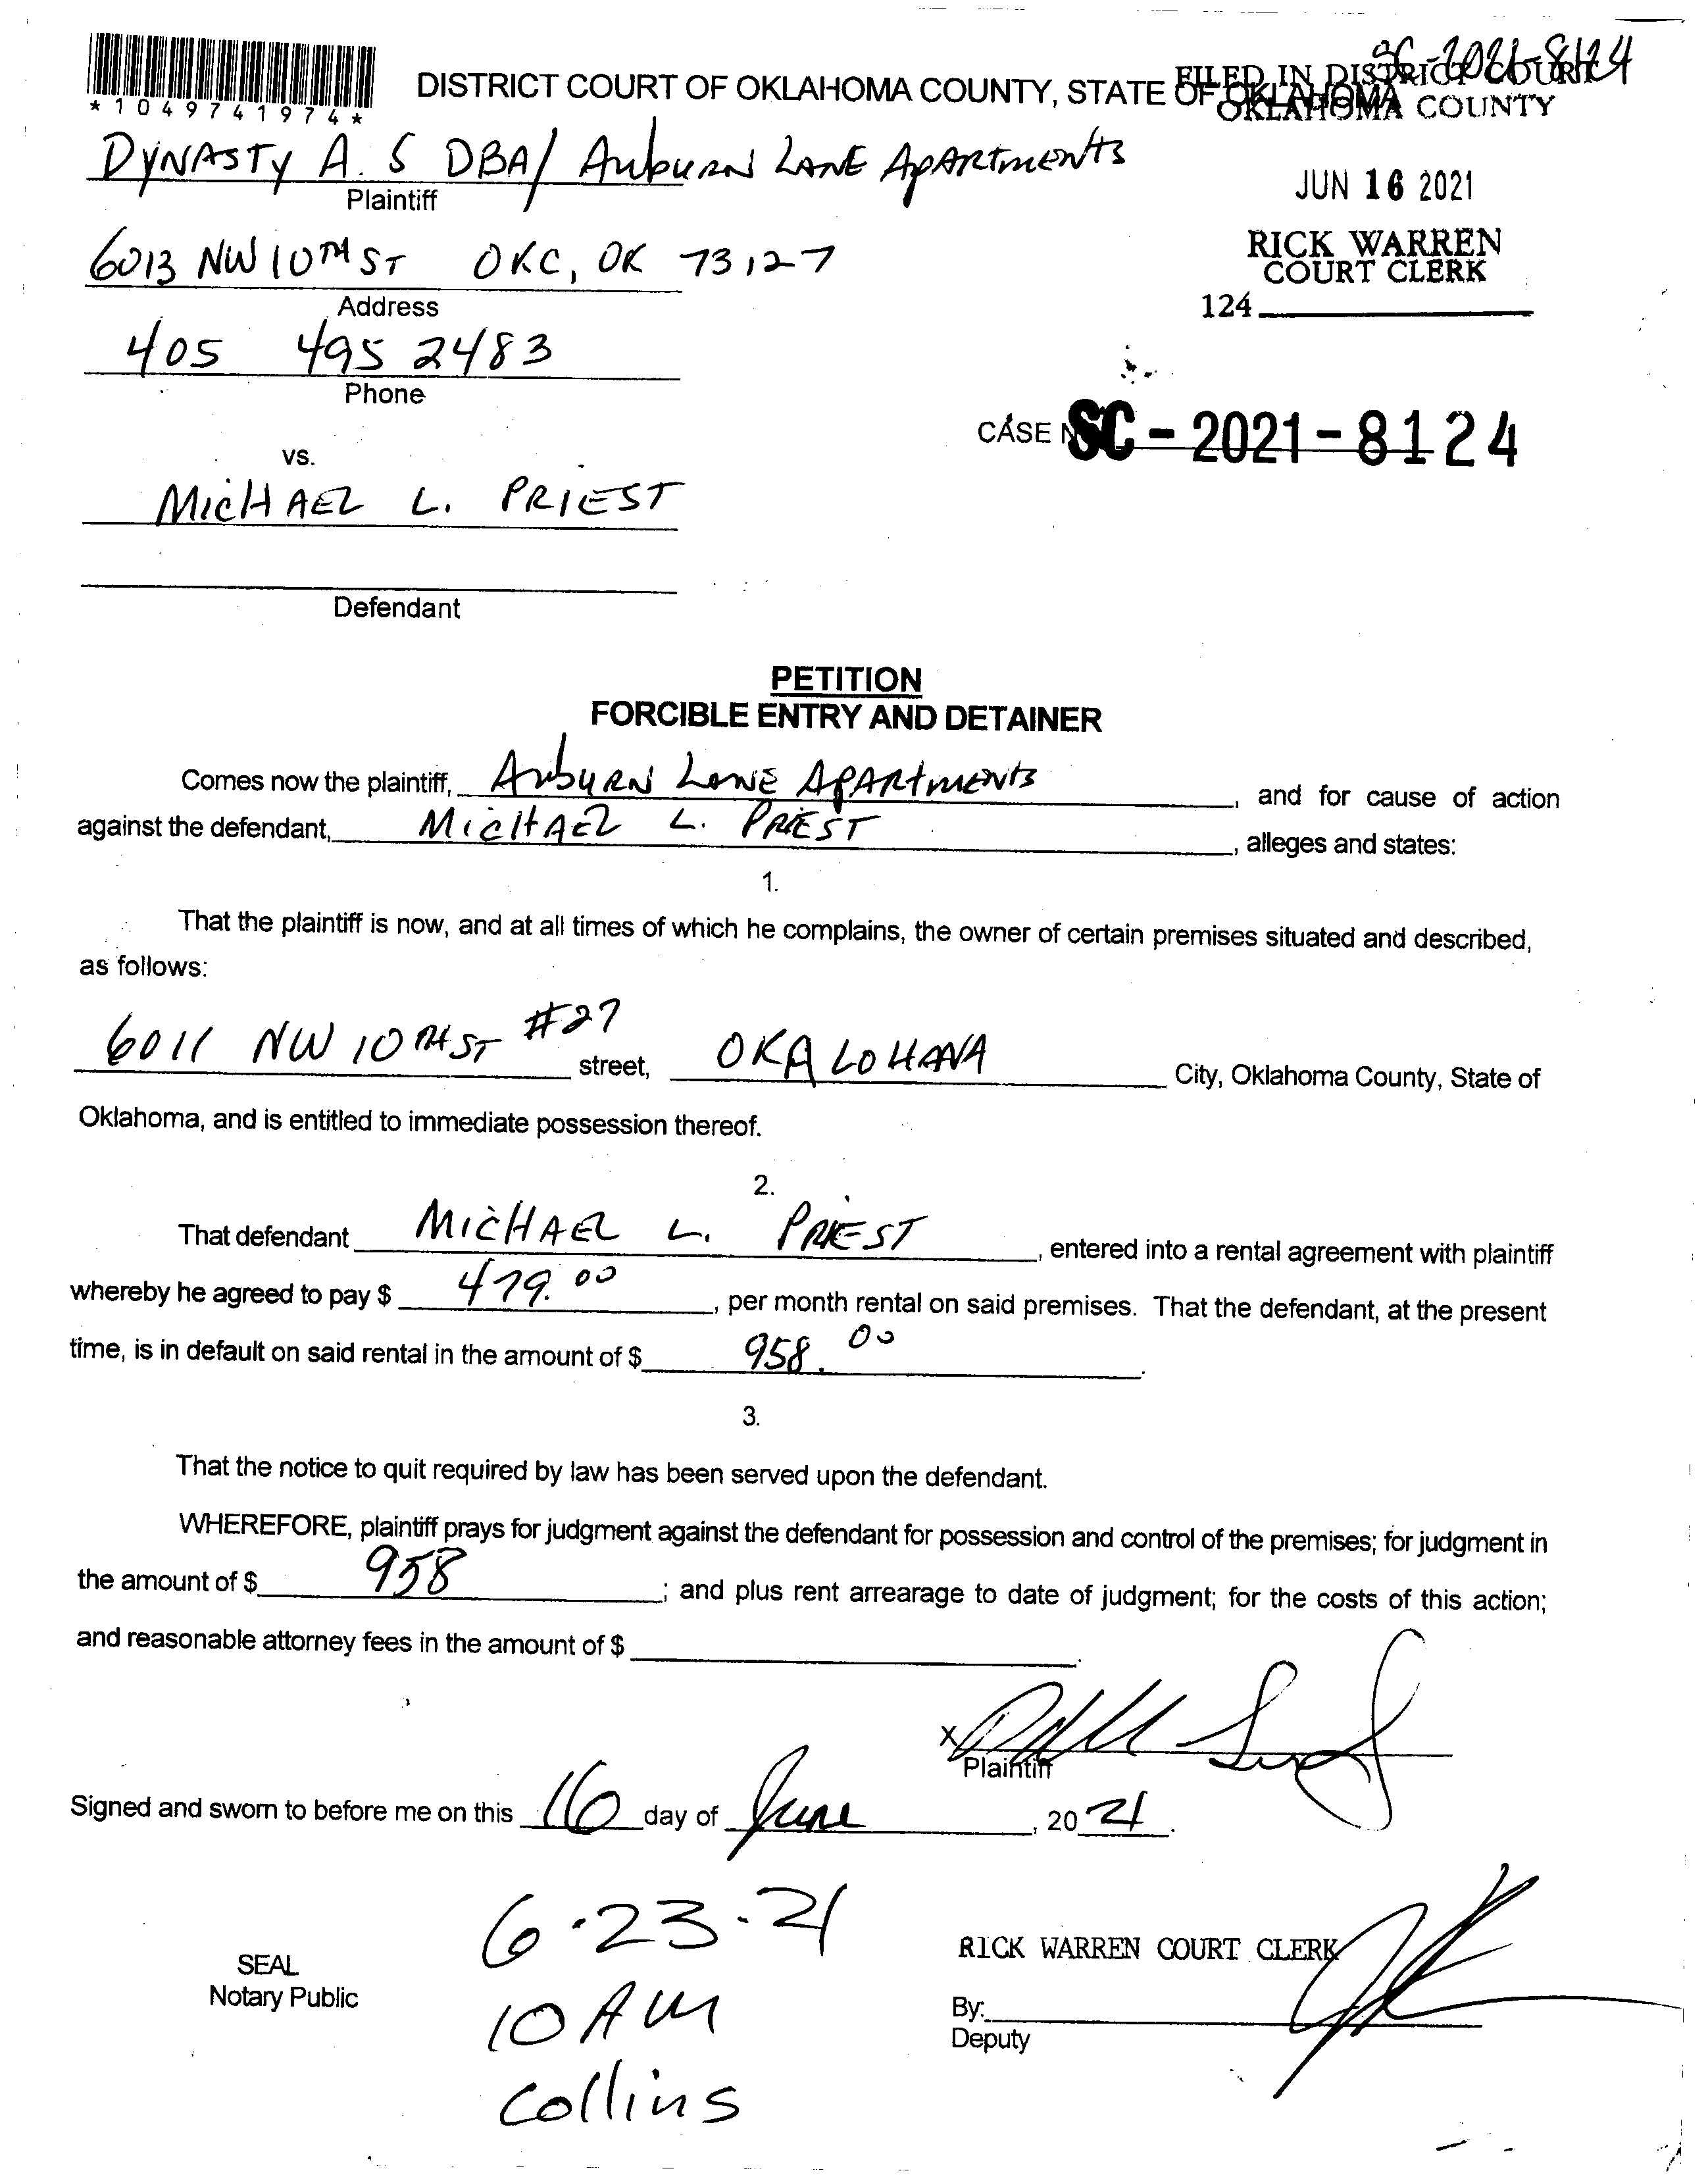 SC-2021-8124
DISTRICT COURT OF OKLAHOMA COUNTY, STATE OF OKLAHOMA
FILED IN DISTRICT COURT
OKLAHOMA COUNTY
*1049741974*
DYNASTY A. S DBA/ AubuRN LANE ApARTmENTS
Plaintiff
JUN 16 2021
6013 NW 10TH ST OKC, OK 73127
RICK WARREN
COURT CLERK
Address
124
405 495 2483
Phone
CASE SC-2021-8124
vs.
MICHAEL L. PRIEST
Defendant
PETITION
FORCIBLE ENTRY AND DETAINER
Comes now the plaintiff, AubuRN LANE APARTMENTS, and for cause of action
against the defendant, MICHAEL L. PRIEST, alleges and states:
1.
That the plaintiff is now, and at all times of which he complains, the owner of certain premises situated and described,
as follows:
6011 NW 10TH ST #27 street, OKALOHAMA City, Oklahoma County, State of
Oklahoma, and is entitled to immediate possession thereof.
2.
That defendant MICHAEL L. PRIEST, entered into a rental agreement with plaintiff
whereby he agreed to pay $ 479.00, per month rental on said premises. That the defendant, at the present
time, is in default on said rental in the amount of $ 958.00.
3.
That the notice to quit required by law has been served upon the defendant.
WHEREFORE, plaintiff prays for judgment against the defendant for possession and control of the premises; for judgment in
the amount of $ 958; and plus rent arrearage to date of judgment; for the costs of this action;
and reasonable attorney fees in the amount of $
X
Plaintiff
Signed and sworn to before me on this 16 day of June, 20 21.
6.23.21
SEAL
Notary Public
RICK WARREN COURT CLERK
10 AM
By:
Deputy
Collins